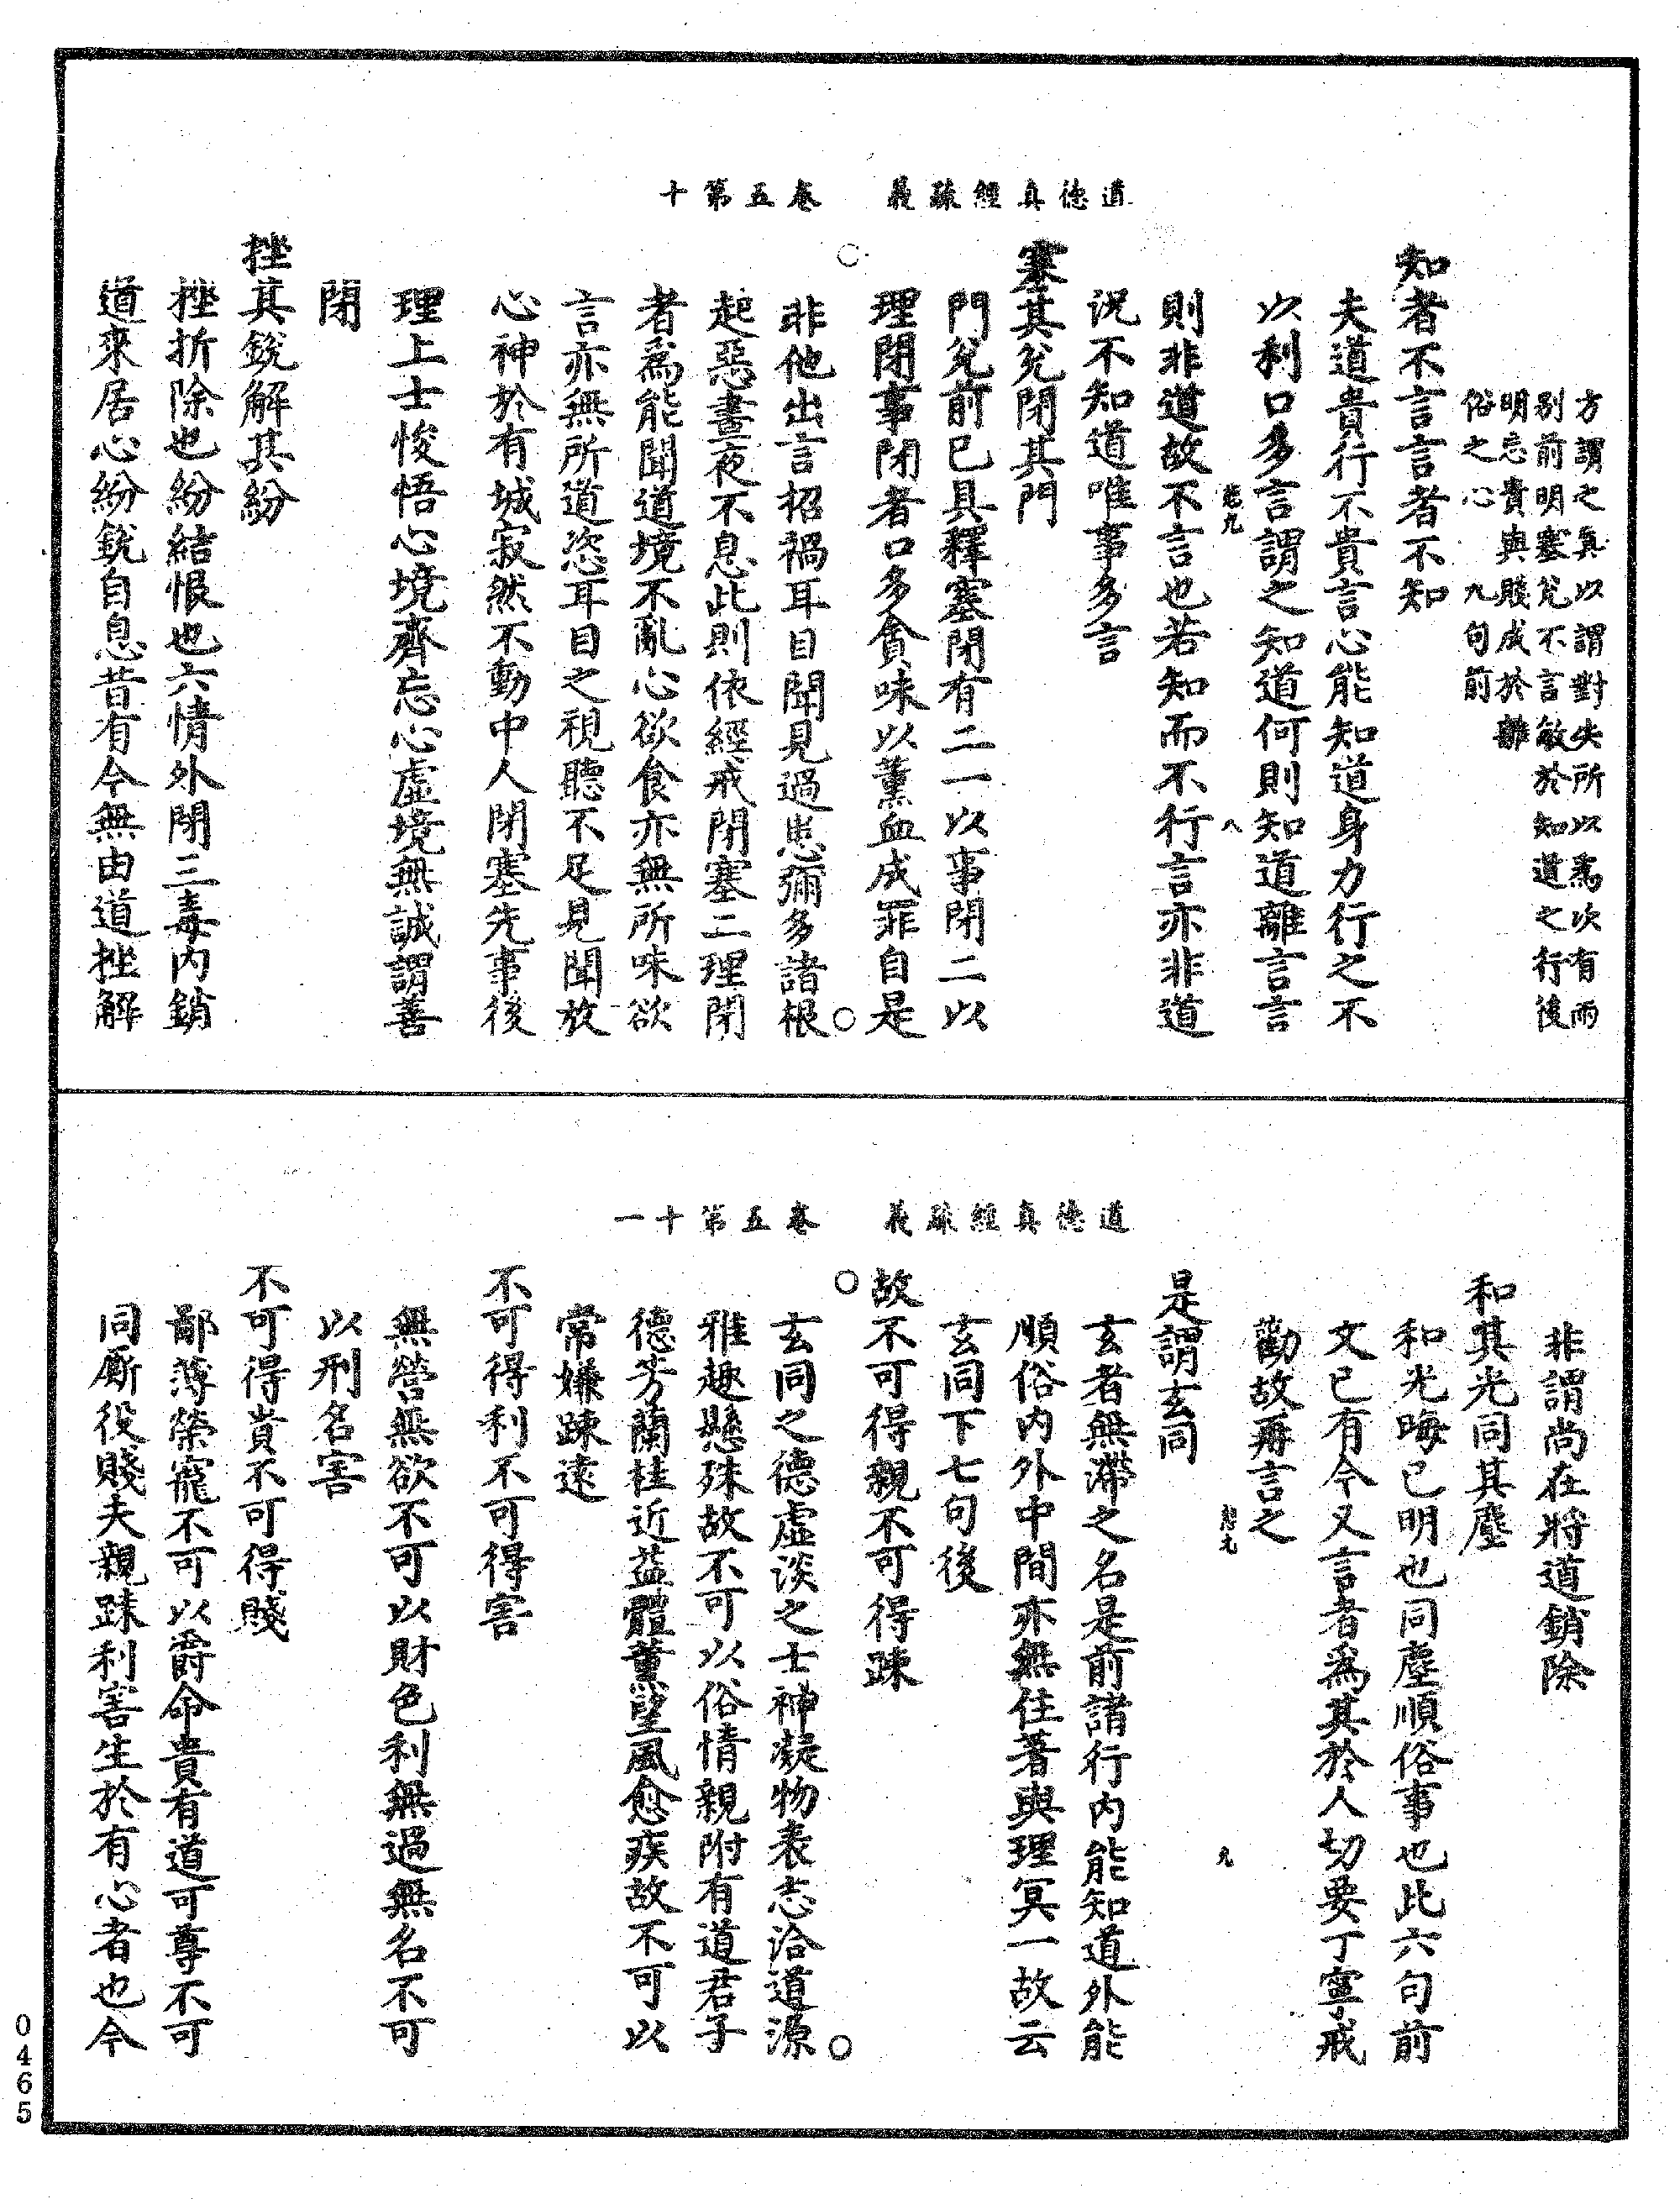 道德真經疏義　卷五第十
方謂之真以謂對失所以為次有兩
別前明塞兌不言敏於知道之行後
明忘貴與賤成於離
俗之心　九句前
知者不言言者不知
夫道貴行不貴言心能知道身力行之不
以利口多言謂之知道何則知道離言言
八
則非道故不言也若知而不行言亦非道
況不知道唯事多言
塞其兌閉其門
門兌前已具釋塞閉有二一以事閉二以
理閉事閉者口多貪味以薰血成罪自是
非他出言招禍耳目聞見過患彌多諸根
起惡晝夜不息此則依經戒閉塞二理閉
者為能聞道境不亂心欲食亦無所味欲
言亦無所道恣耳目之視聽不足見聞放
心神於有城寂然不動中人閉塞先事後
理上士悛悟心境齊忘心虛境無誠謂善
閉
挫其銳解其紛
挫折除也紛結恨也六情外閉三毒內銷
道來居心紛銳自息昔有今無由道挫解
道德真經疏義　卷五第十一
非謂尚在將道銷除
和其光同其塵
和光晦已明也同塵順俗事也此六句前
文已有今又言者為其於人切要丁寧戒
勸故再言之
九
是謂玄同
玄者無滯之名是前諸行內能知道外能
順俗內外中間亦無住著與理冥一故云
玄同下七句後
故不可得親不可得踈
玄同之德虛淡之士神凝物表志洽道源
雅趣懸殊故不可以俗情親附有道君子
德芳蘭桂近益體薰望風愈疾故不可以
常嫌踈遠
不可得利不可得害
無營無欲不可以財色利無過無名不可
以刑名害
不可得貴不可得賤
鄙薄榮寵不可以爵命貴有道可尊不可
同廝役賤夫親踈利害生於有心者也今
0465